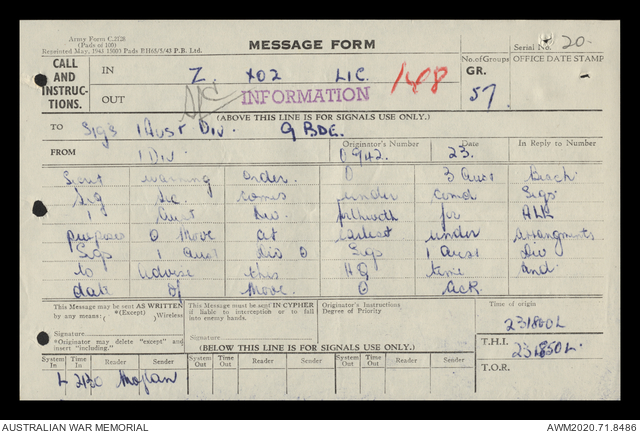 Army Form C.2128
(Pads of 100)
Reprinted May, 1943
P.B. Ltd.
MESSAGE FORM
Serial No. 20
CALL AND INSTRUCTIONS.
IN Z. XO2 LIC.
OUT
INFORMATION
148
No. of Groups
GR.
57.
OFFICE DATE STAMP
(ABOVE THIS LINE IS FOR SIGNALS USE ONLY.)
TO Sigs 1 Aust Div. 9 BDE.
FROM 1 Div.
Originator's Number
0942.
Date
23.
In Reply to Number
Secret warning order. O 3 Aust Beach
Sig Sec. comes under comd Sigs
1 Aust Div. forthwith for ALL
purposes O Move at earliest under arrangments
Sigs 1 Aust Div O Sigs 1 Aust Div
to advise this HQ time and
date of move. O ACK.
This Message may be sent AS WRITTEN by any means: (Except) Wireless
Signature
*Originator may delete "except" and insert "including."
This Message must be sent IN CYPHER if liable to interception or to fall into enemy hands.
Signature
Originator's Instructions
Degree of Priority
Time of origin
231800L
(BELOW THIS LINE IS FOR SIGNALS USE ONLY.)
T.H.I.
231850L.
T.O.R.
System In
Time In
Reader
Sender
System Out
Time Out
Reader
Sender
System Out
Time Out
Reader
Sender
L 2130
AUSTRALIAN WAR MEMORIAL
AWM2020.71.8486